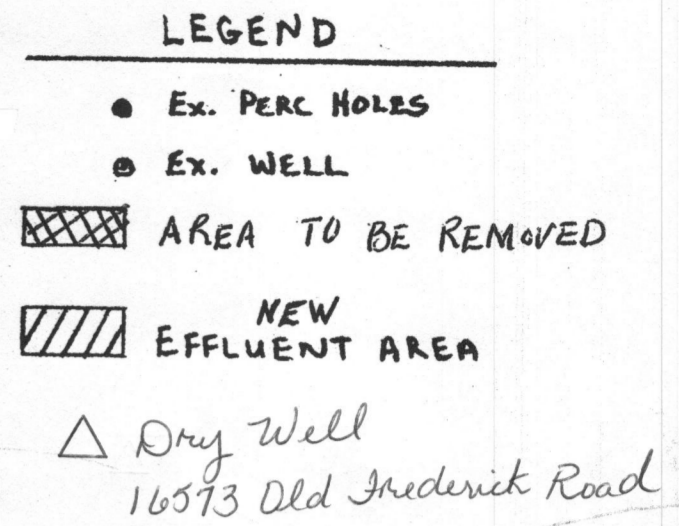 LEGEND
Ex. PERC HOLES
Ex. WELL
AREA TO BE REMOVED
NEW
EFFLUENT AREA
Dry Well
16573 Old Frederick Road